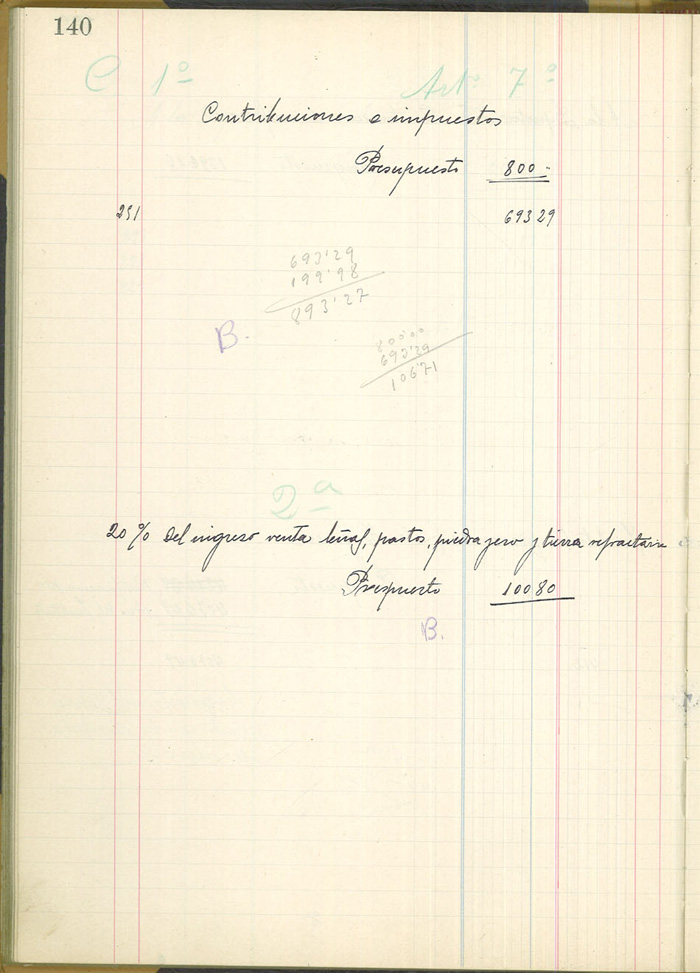 140
C 1º Artº 7º
Contribuciones e impuestos
Presupuesto 800 -
251 693 29
693'29
199'98
893'27
B.
800'00
693'29
106'71
2ª
20% del ingreso venta leñas, pastos, piedra yeso y tierra refractaria
Presupuesto 100 80
B.